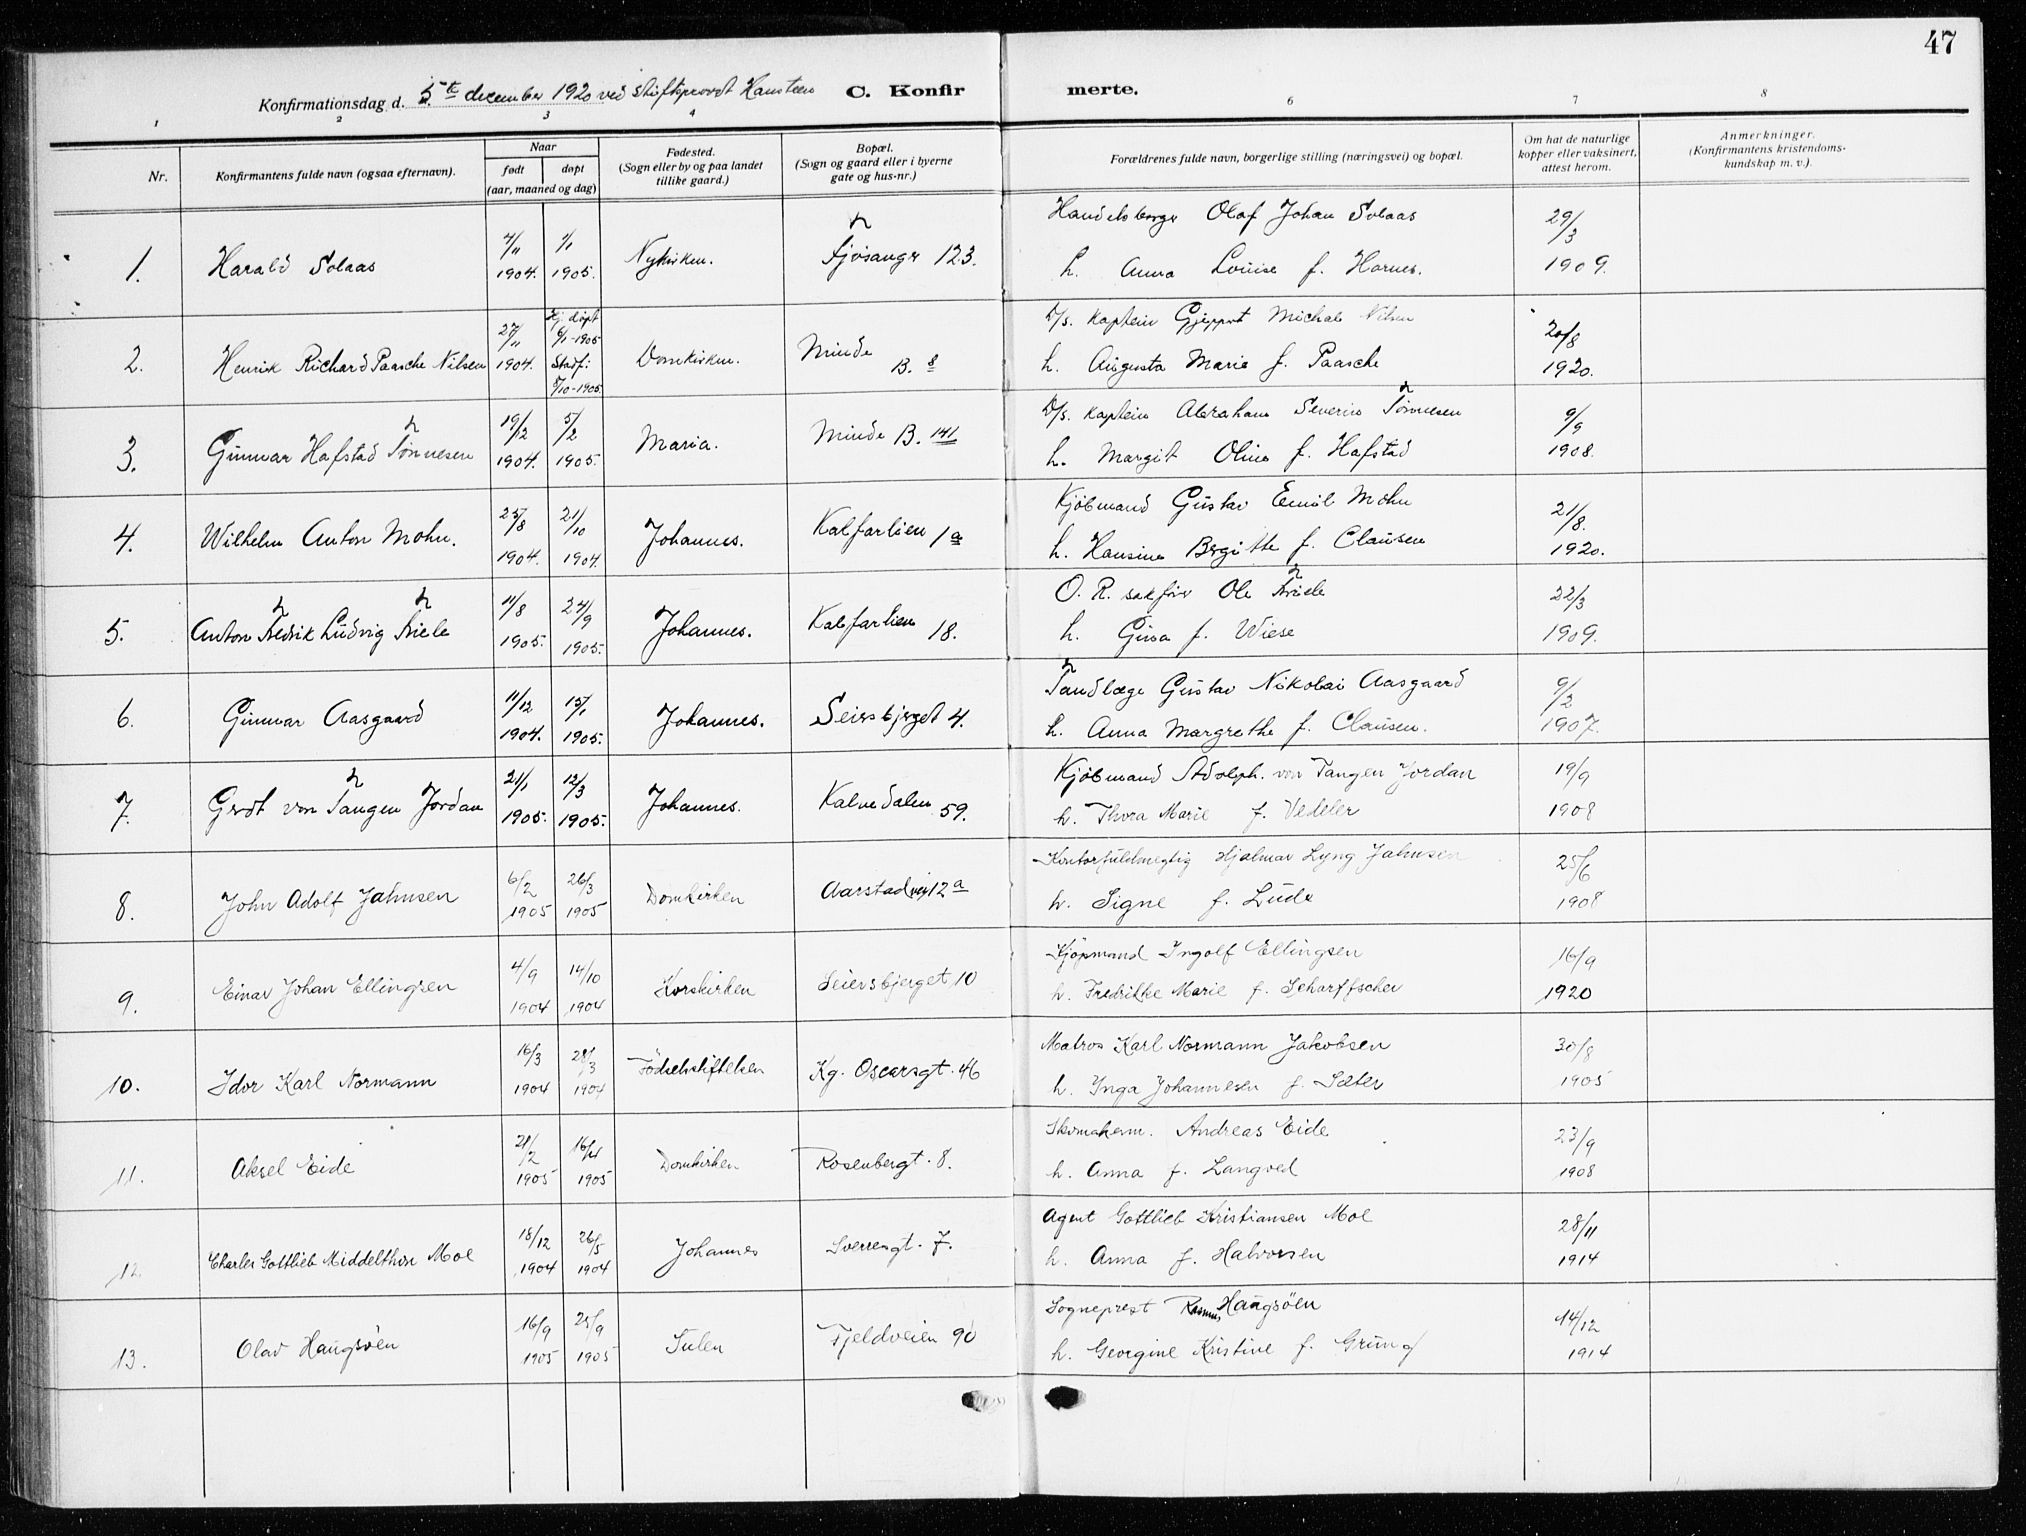 47
Konfirmationsdag d. 5te december 1920 ved stiftsprovst Hansteen C. Konfirmerte.
1 2 3 4 6 7 8
Nr. Konfirmantens fulde navn (ogsaa efternavn). Naar født døpt (aar, maaned og dag) Fødested. (Sogn eller by og paa landet tillike gaard.) Bopæl. (Sogn og gaard eller i byerne gate og hus-nr.) Forældrenes fulde navn, borgerlige stilling (næringsvei) og bopæl. Om hat de naturlige kopper eller vaksinert, attest herom. Anmerkninger. (Konfirmantens kristendomskundskap m. v.).
1. Harald Solaas 4/11 1904. 1/1 1905. Nykirken. Fjøsangv 123. Handelsborger Olaf Johan Solaas 29/3
h. Anna Louise f. Harnes. 1909.
2. Henrik Richard Paasche Nilsen 27/11 1904. Hj. døpt 6/1-1905 Stadf: 8/10-1905. Domkirken. Minde B. 8 D/s. Kaptein Michal Nilsen 20/8
h. Augusta Marie f. Paasche 1920.
3. Gunnar Hafstad Tønnesen 19/12 1904. 5/2 1905. Maria. Minde B. 141 D/s. Kaptein Abraham Severin Tønnesen 9/9
h. Margit Oline f. Hafstad 1908.
4. Wilhelm Anton Mohn. 25/8 1904. 21/10 1904. Johannes. Kalfarlien 1a Kjøbmand Gustav Emil Mohn 21/8.
h. Hansine Bergitte f. Clausen 1920.
5. Anton Fredrik Ludvig Friele 11/8 1905. 24/9 1905. Johannes. Kalfarlien 18. O. R. sakfører Ole Friele 22/3
h. Gina f. Wiese 1909.
6. Gunnar Aasgaard 11/12 1904. 15/1 1905. Johannes. Seiersbjerget 4. Tandlæge Gustav Nikolai Aasgaard 9/2
h. Anna Margrethe f. Clausen. 1907.
7. Gerdt von Tangen Jordan 21/1 1905. 12/3 1905. Johannes. Kalvedalen 59. Kjøbmand Adolph. von Tangen Jordan 19/9
h. Thora Marie f. Vedeler 1908
8. John Adolf Jahnsen 6/2 1905 26/3 1905 Domkirken Aarstadvei 12a Kontorfuldmegtig Hjalmar Lyng Jahnsen 25/6
h. Signe f. Lude 1908
9. Einar Johan Ellingsen 4/9 1904 14/10 1904 Korskirken Seiersbjerget 10 Kjøpmand Ingolf Ellingsen 16/9
h. Fredrikke Marie f. Scharffscher 1920
10. Idor Karl Normann 16/3 1904 28/3 1904 Fødselsstiftelsen Kg. Oscarsgt. 46 Matros Karl Normann Jakobsen 30/8
h. Inga Johannesen f. Sæter 1905
11. Aksel Eide 21/2 1905 16/4 1905 Domkirken Rosenbergt. 8. Skomakerm. Andreas Eide 23/9
h. Anna f. Langved 1908
12. Charles Gottlieb Middelthon Moe 18/12 1904 26/5 1904 Johannes Sverresgt. 7. Agent Gottlieb Kristiansen Moe 28/11
h. Anna f. Halvorsen 1914
13. Olav Haugsøen 16/9 1905 25/9 1905 Sulen Fjeldveien 90 Sogneprest Rasmus Haugsøen 14/12
h. Georgine Kristine f. Grung 1914